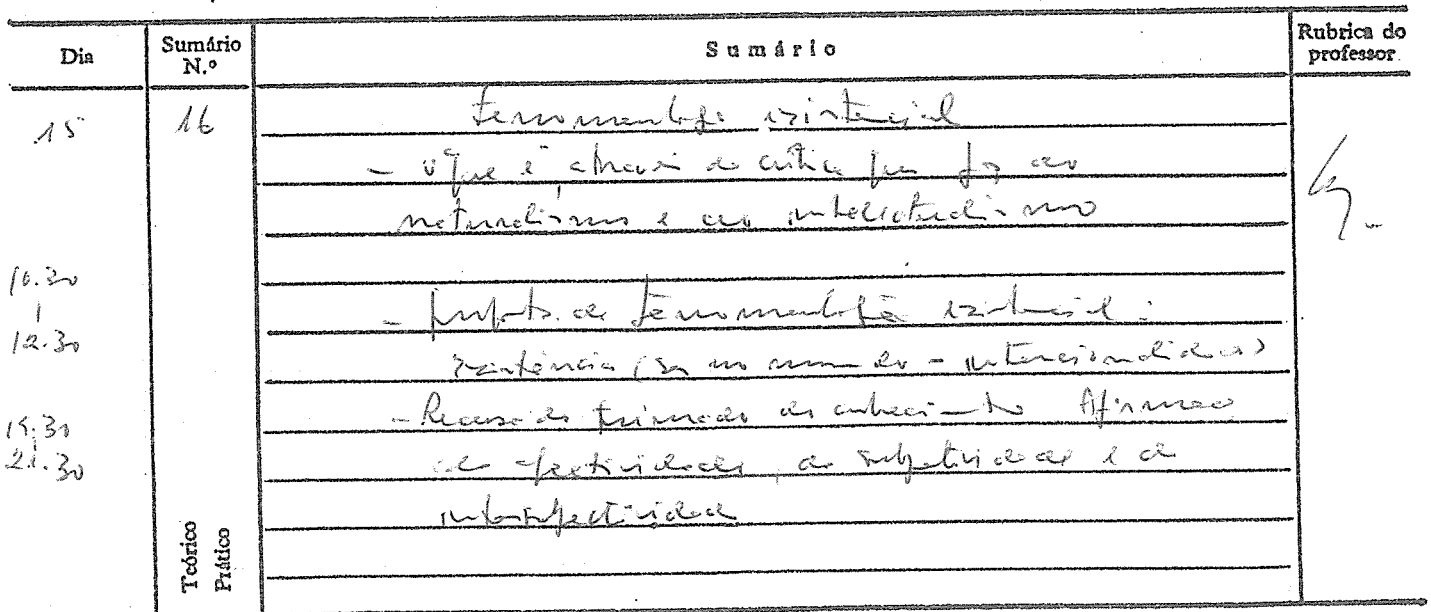 Dia Sumário N.º Sumário Rubrica do professor
15 16 Fenomenologia existencial
- o que é através da crítica que faz ao
naturalismo e ao intelectualismo
10.30
12.30
- da fenomenologia existencial:
existência (ser no mundo - intencionalidade)
- Recusa do primado do conhecimento Afirmação
.30
21.30
da afectividade, da subjetividade e da
intersubjectividade
Teórico
Prático